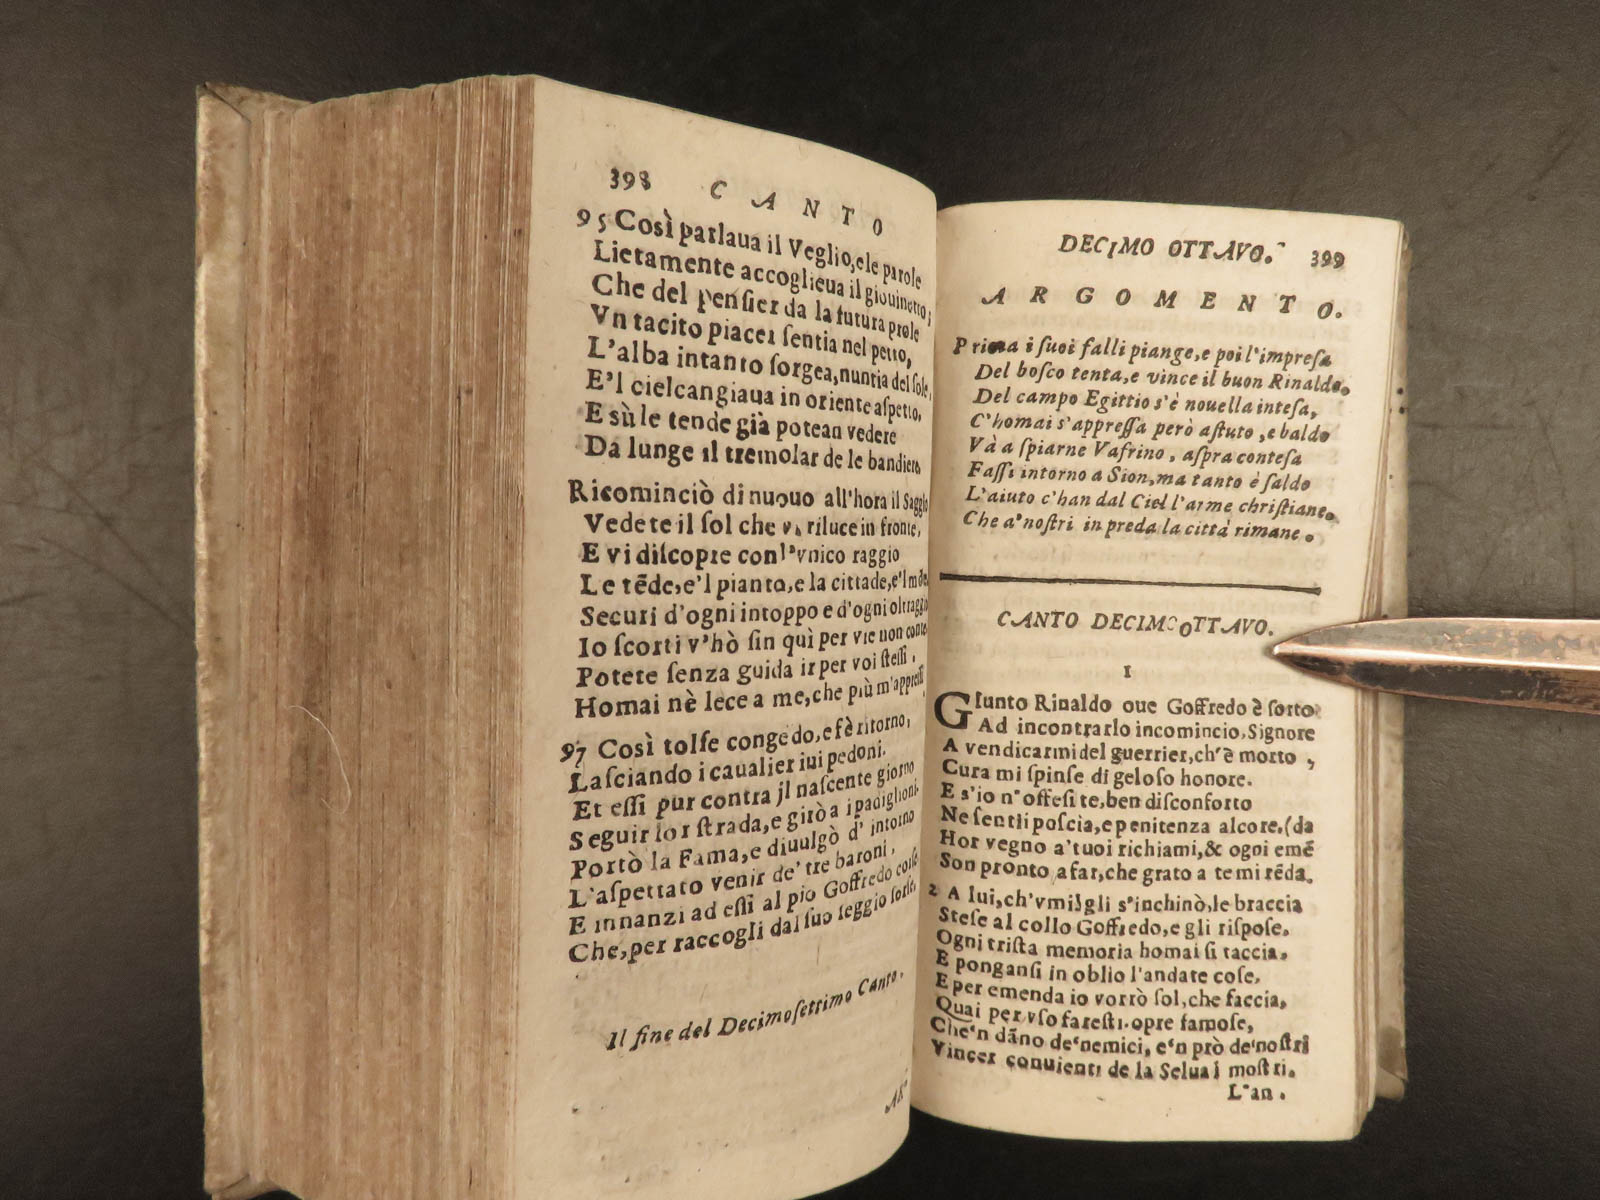 398 CANTO
95 Così parlaua il Veglio, e le parole
Lietamente accoglieua il giouinetto;
Che del penſier da la futura prole
Vn tacito piacer ſentia nel petto,
L'alba intanto ſorgea, nuntia del ſole,
E'l ciel cangiaua in oriente aſpetto,
E sù le tende già potean vedere
Da lunge il tremolar de le bandiere
Ricominciò di nuouo all'hora il Saggio
Vedete il ſol che vi riluce in fronte,
E vi diſcopre con l'vnico raggio
Le tēde, e'l pianto, e la cittade, e'l mōte,
Securi d'ogni intoppo e d'ogni oltraggio
Io ſcorti v'hò ſin quì per vie non conte
Potete ſenza guida ir per voi ſteſſi,
Homai nè lece a me, che più m'appreſſi
97 Così tolſe congedo, e fè ritorno,
Laſciando i caualier iui pedoni.
Et eſſi pur contra jl naſcente giorno
Seguir lor ſtrada, e girò a i padiglioni.
Portò la Fama, e diuulgò d' intorno
L'aſpettato venir de' tre baroni,
E innanzi ad eſſi al pio Goffredo corſe
Che, per raccogli dal ſuo ſeggio ſorſe,
Il fine del Decimoſettimo Canto.
AR-
DECIMO OTTAVO. 399
ARGOMENTO.
Prima i ſuoi falli piange, e poi l'impreſa
Del boſco tenta, e vince il buon Rinaldo.
Del campo Egittio s'è nouella inteſa,
C'homai s'appreſſa però aſtuto, e baldo
Và a ſpiarne Vafrino, aſpra conteſa
Faſſi intorno a Sion, ma tanto è ſaldo
L'aiuto c'han dal Ciel l'arme chriſtiane.
Che a' noſtri in preda la città rimane.
CANTO DECIMOOTTAVO.
I
GIunto Rinaldo oue Goffredo è ſorto
Ad incontrarlo incomincio, Signore
A vendicarmi del guerrier, ch'è morto,
Cura mi ſpinſe di geloſo honore.
E s'io n'offeſi te, ben diſconforto
Ne ſentij poſcia, e penitenza al core. (da
Hor vegno a' tuoi richiami, & ogni emē
Son pronto a far, che grato a te mi rēda.
2 A lui, ch'vmil gli s'inchinò, le braccia
Steſe al collo Goffredo, e gli riſpoſe.
Ogni triſta memoria homai ſi taccia.
E ponganſi in oblio l'andate coſe,
E per emenda io vorrò ſol, che faccia,
Quai per vſo fareſti. opre famoſe,
Che'n dāno de'nemici, e'n prò de'noſtri
Vincer conuienti de la Selua i moſtri.
L'an.